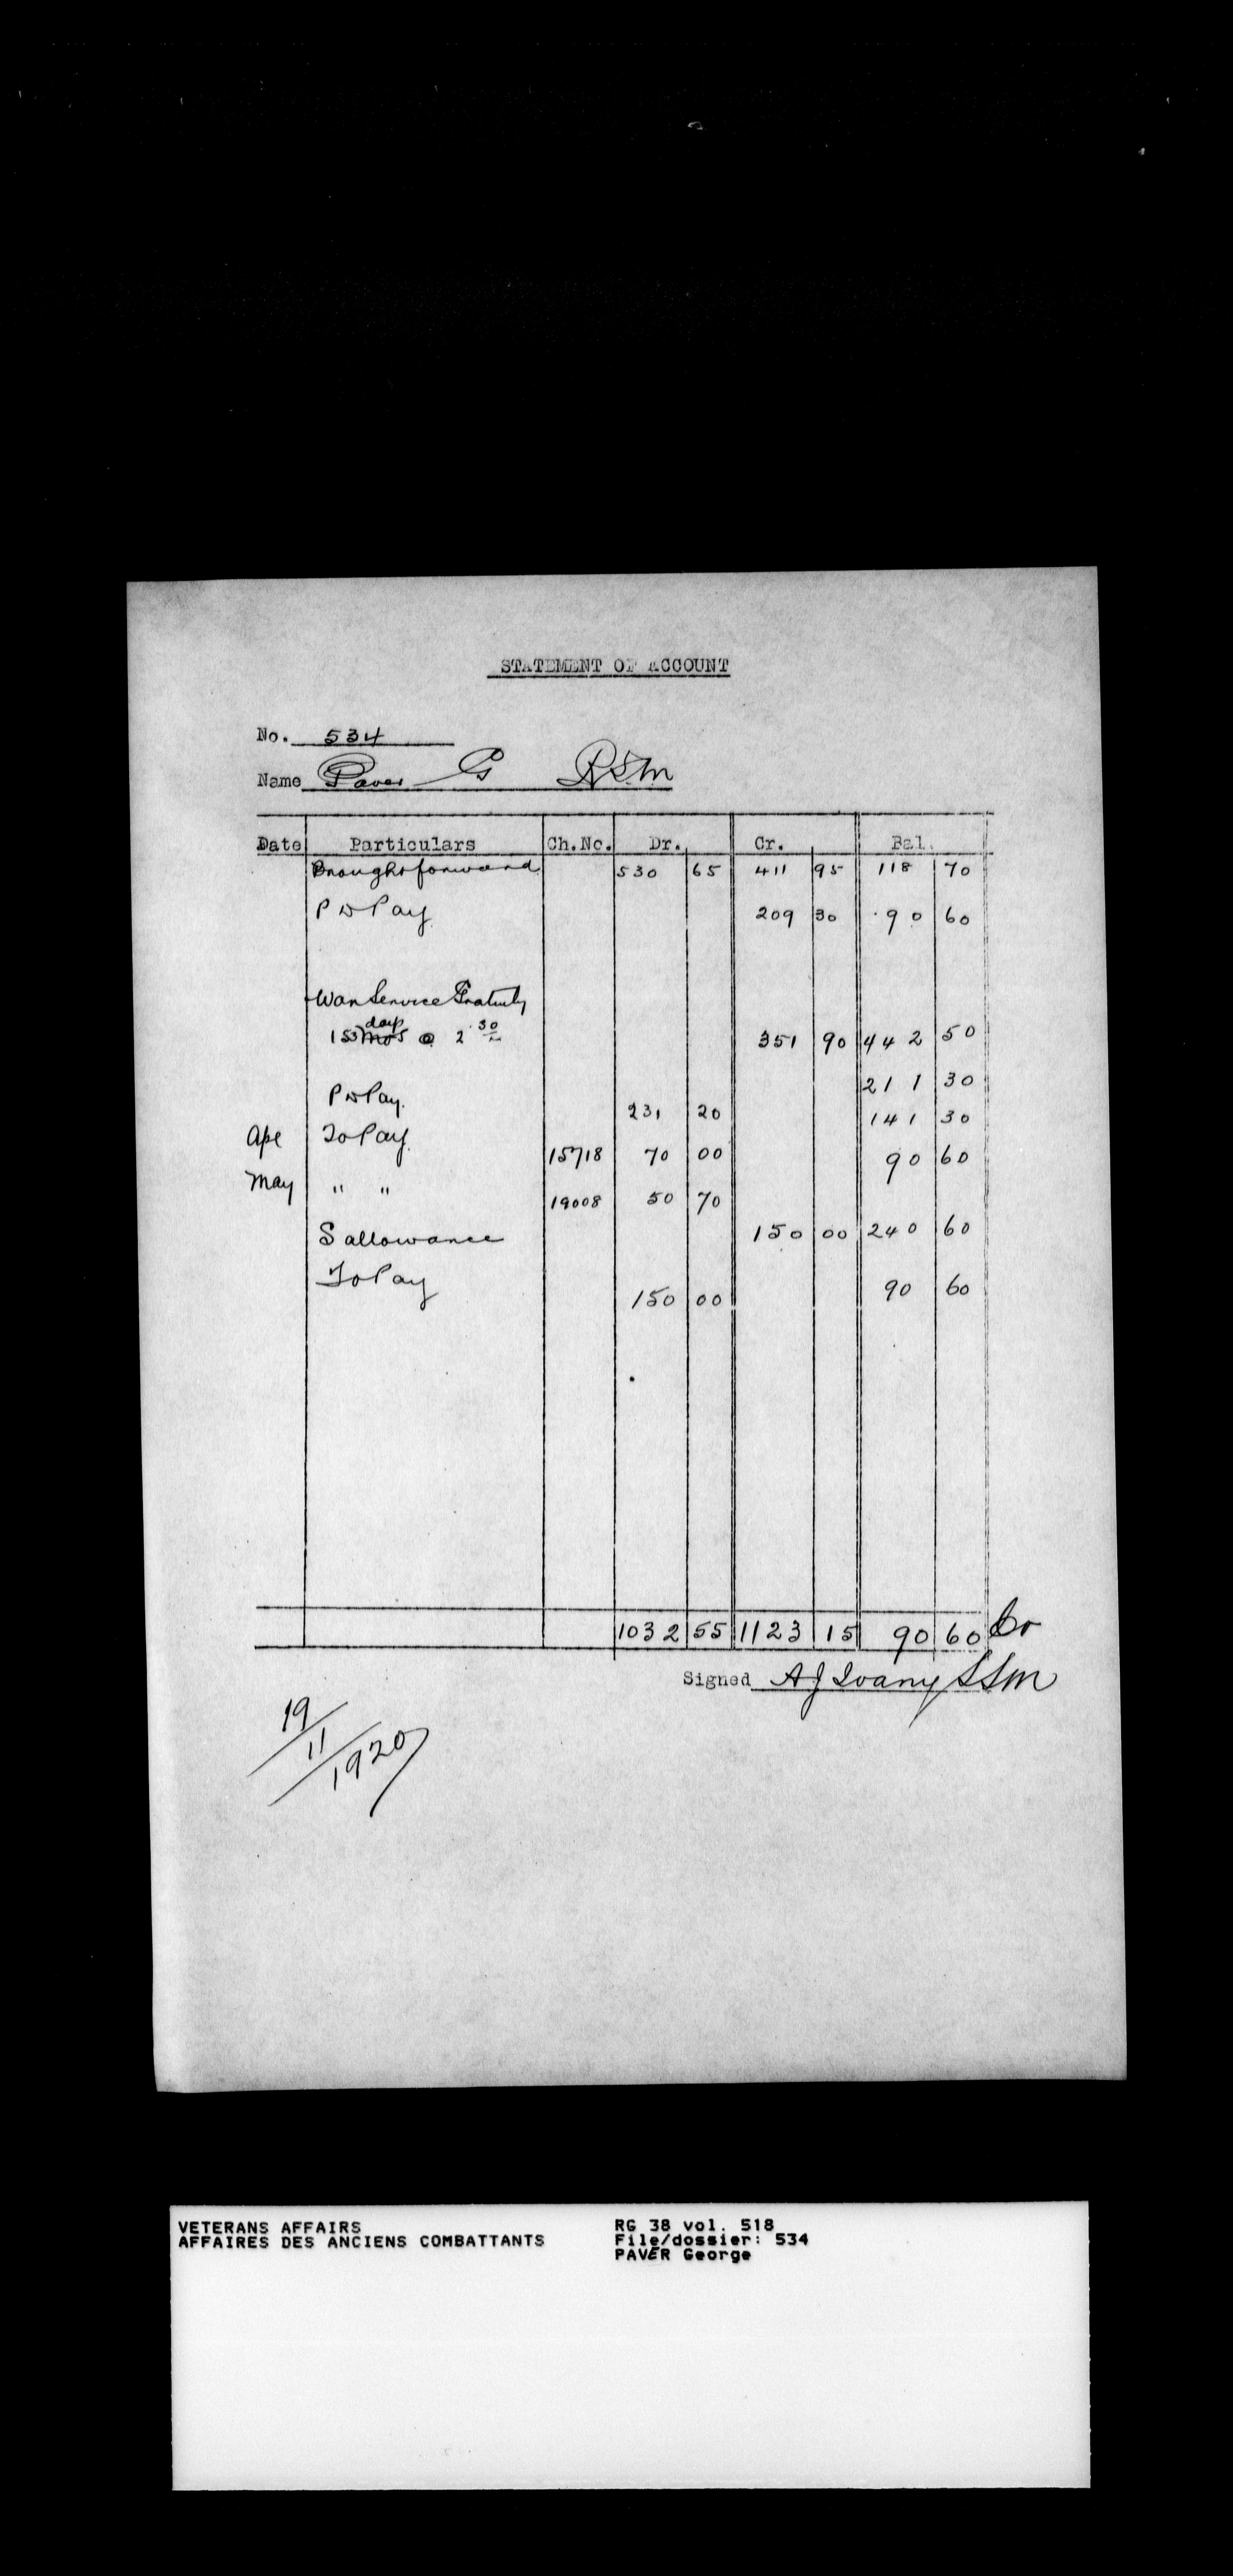 STATEMENT OF ACCOUNT
No. 534
Name Paver G R.S.M
Date Particulars Ch.No. Dr. Cr. Bal.
Brought forward 530 65 411 95 118 70
P D Pay 209 30 90 60
War Service Gratuity
153 mos days @ 2 30 351 90 442 50
211 30
P D Pay. 231 20 141 30
Ape To Pay. 15718 70 00 90 60
May " " 19008 50 70
S allowance 150 00 240 60
To Pay 150 00 90 60
1032 55 1123 15 90 60 Cr
Signed A J Ivany SSM
19/11/1920
VETERANS AFFAIRS RG 38 vol. 518
AFFAIRES DES ANCIENS COMBATTANTS File/dossier: 534
PAVER George